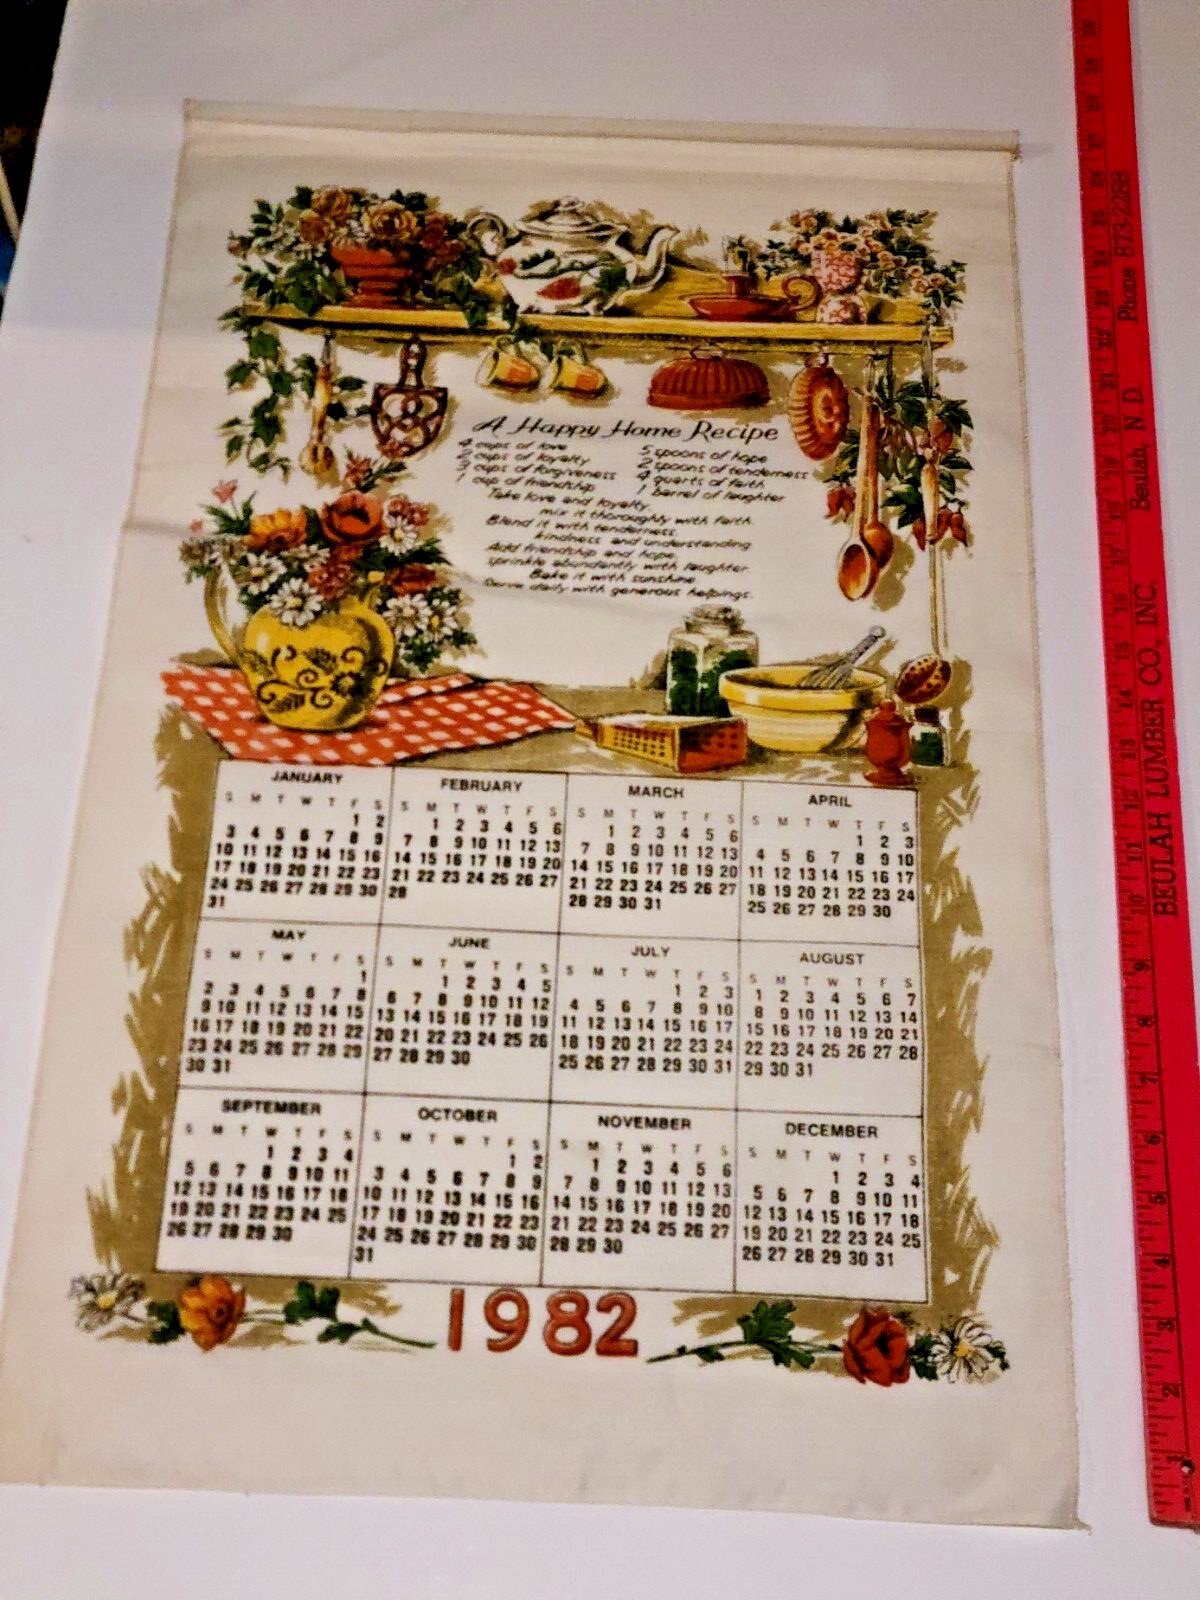 A Happy Home Recipe
4 cups of love
2 cups of loyalty
3 cups of forgiveness
1 cup of friendship
5 spoons of hope
2 spoons of tenderness
4 quarts of faith
1 barrel of laughter
Take love and loyalty,
mix it thoroughly with faith.
Blend it with tenderness,
kindness and understanding
Add friendship and hope,
sprinkle abundantly with laughter.
Bake it with sunshine
Serve daily with generous helpings.
JANUARY
S M T W T F S
1 2
3 4 5 6 7 8 9
10 11 12 13 14 15 16
17 18 19 20 21 22 23
24 25 26 27 28 29 30
31
FEBRUARY
S M T W T F S
1 2 3 4 5 6
7 8 9 10 11 12 13
14 15 16 17 18 19 20
21 22 23 24 25 26 27
28
MARCH
S M T W T F S
1 2 3 4 5 6
7 8 9 10 11 12 13
14 15 16 17 18 19 20
21 22 23 24 25 26 27
28 29 30 31
APRIL
S M T W T F S
1 2 3
4 5 6 7 8 9 10
11 12 13 14 15 16 17
18 19 20 21 22 23 24
25 26 27 28 29 30
MAY
S M T W T F S
1
2 3 4 5 6 7 8
9 10 11 12 13 14 15
16 17 18 19 20 21 22
23 24 25 26 27 28 29
30 31
JUNE
S M T W T F S
1 2 3 4 5
6 7 8 9 10 11 12
13 14 15 16 17 18 19
20 21 22 23 24 25 26
27 28 29 30
JULY
S M T W T F S
1 2 3
4 5 6 7 8 9 10
11 12 13 14 15 16 17
18 19 20 21 22 23 24
25 26 27 28 29 30 31
AUGUST
S M T W T F S
1 2 3 4 5 6 7
8 9 10 11 12 13 14
15 16 17 18 19 20 21
22 23 24 25 26 27 28
29 30 31
SEPTEMBER
S M T W T F S
1 2 3 4
5 6 7 8 9 10 11
12 13 14 15 16 17 18
19 20 21 22 23 24 25
26 27 28 29 30
OCTOBER
S M T W T F S
1 2
3 4 5 6 7 8 9
10 11 12 13 14 15 16
17 18 19 20 21 22 23
24 25 26 27 28 29 30
31
NOVEMBER
S M T W T F S
1 2 3 4 5 6
7 8 9 10 11 12 13
14 15 16 17 18 19 20
21 22 23 24 25 26 27
28 29 30
DECEMBER
S M T W T F S
1 2 3 4
5 6 7 8 9 10 11
12 13 14 15 16 17 18
19 20 21 22 23 24 25
26 27 28 29 30 31
1982
BEULAH LUMBER CO., INC. Beulah, N. D. Phone 873-2288
1 2 3 4 5 6 7 8 9 10 11 12 13 14 15 16 17 18 19 20 21 22 23 24 25 26 27